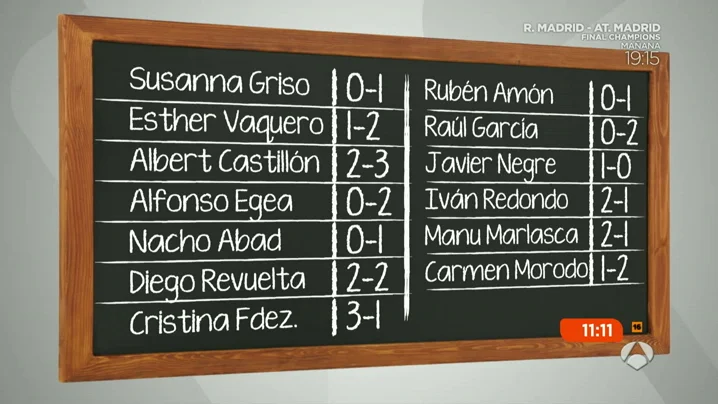 R. MADRID - AT. MADRID
FINAL CHAMPIONS
MAÑANA
19:15
Susanna Griso 0-1
Esther Vaquero 1-2
Albert Castillón 2-3
Alfonso Egea 0-2
Nacho Abad 0-1
Diego Revuelta 2-2
Cristina Fdez. 3-1
Rubén Amón 0-1
Raúl García 0-2
Javier Negre 1-0
Iván Redondo 2-1
Manu Marlasca 2-1
Carmen Morodo 1-2
11:11
16